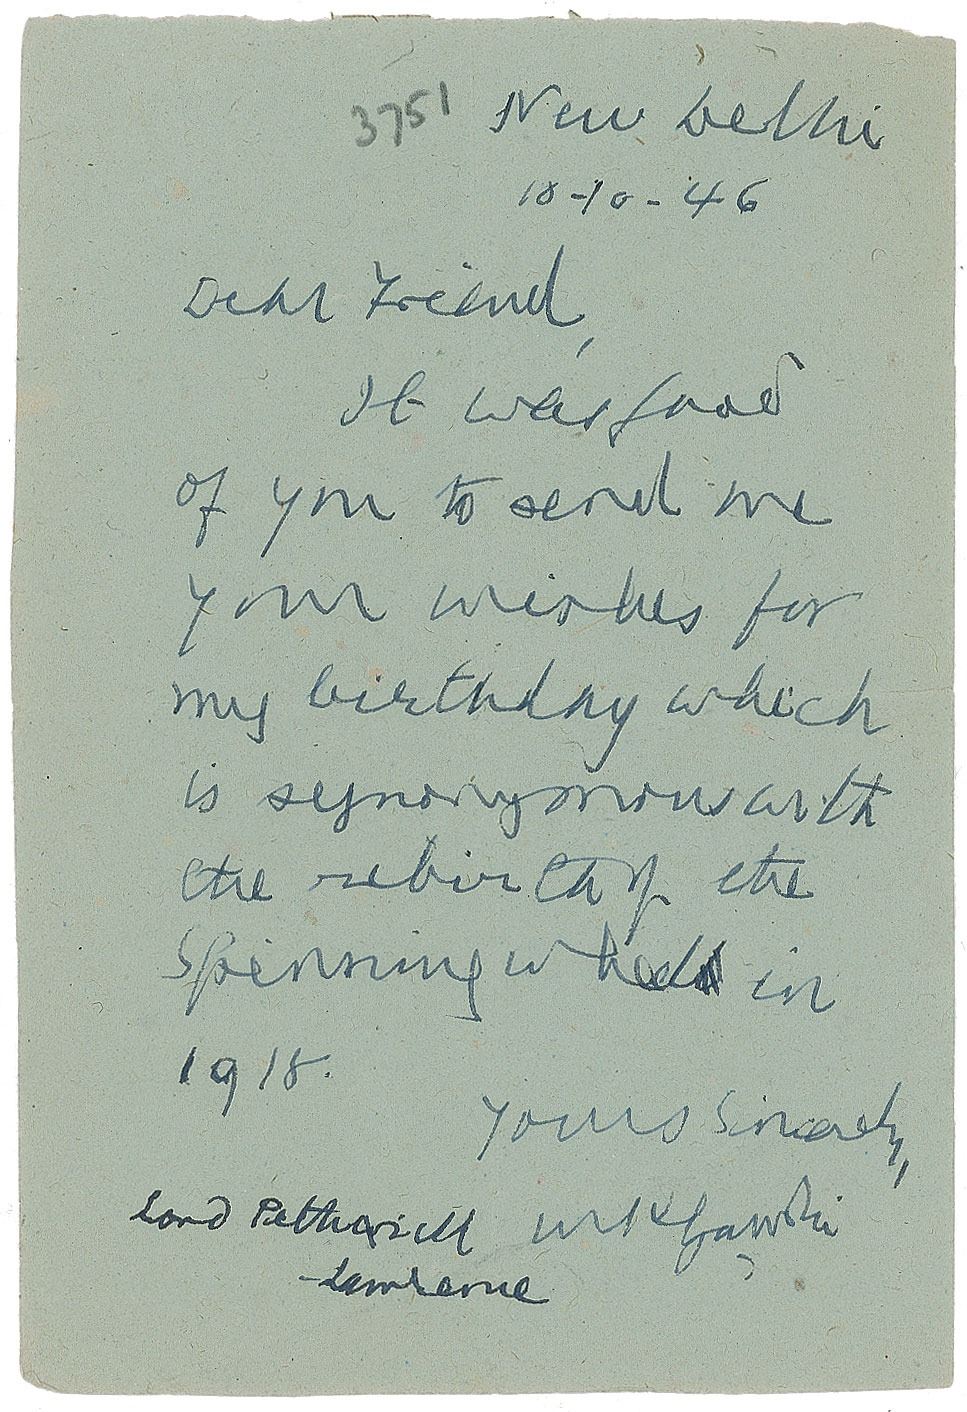 3751 New Delhi
18-10-46
Dear Friend,
It was good
of you to send me
your wishes for
my birthday which
is synonymous with
the rebirth of the
Spinning wheel in
1918.
Yours Sincerely,
MKGandhi
Lord Pethwick
-Lawrence